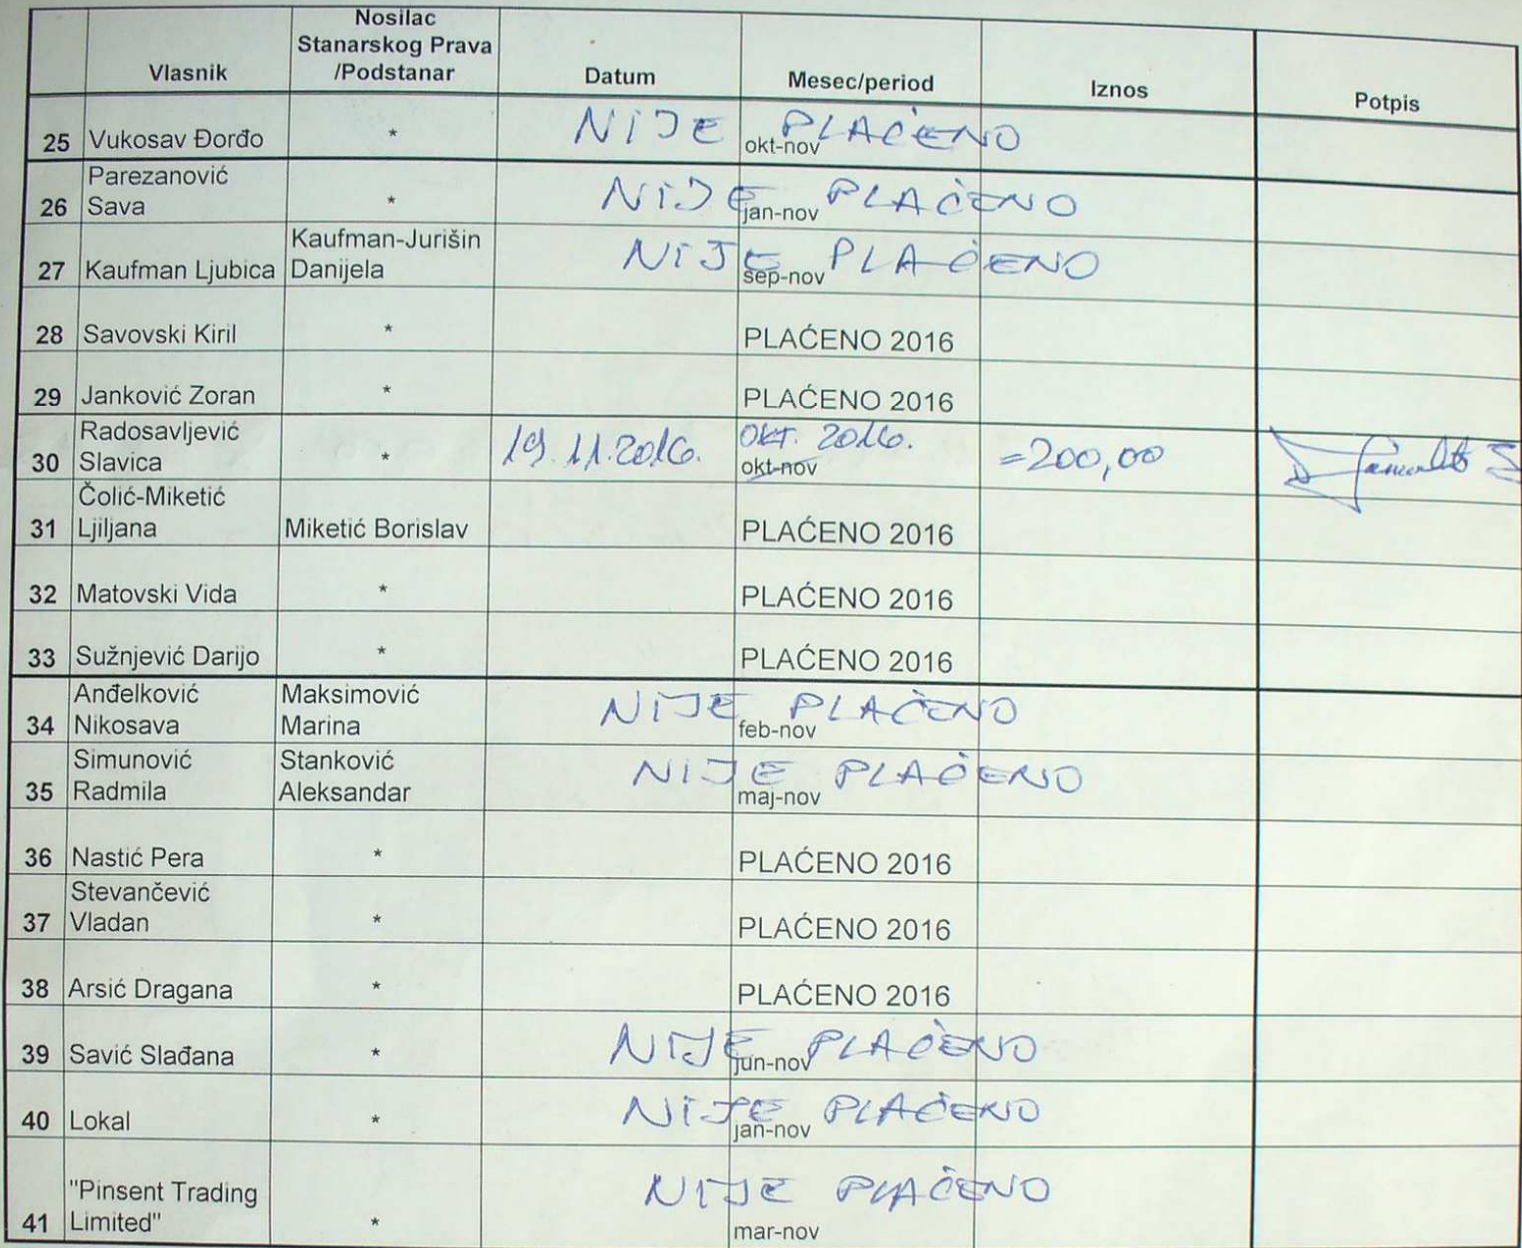 Vlasnik Nosilac Stanarskog Prava /Podstanar Datum Mesec/period Iznos Potpis
25 Vukosav Đorđo * NIJE PLAĆENO okt-nov
26 Parezanović Sava * NIJE PLAĆENO jan-nov
27 Kaufman Ljubica Kaufman-Jurišin Danijela NIJE PLAĆENO sep-nov
28 Savovski Kiril * PLAĆENO 2016
29 Janković Zoran * PLAĆENO 2016
30 Radosavljević Slavica * 19.11.2016. OKT. 2016. okt-nov =200,00
31 Čolić-Miketić Ljiljana Miketić Borislav PLAĆENO 2016
32 Matovski Vida * PLAĆENO 2016
33 Sužnjević Darijo * PLAĆENO 2016
34 Anđelković Nikosava Maksimović Marina NIJE PLAĆENO feb-nov
35 Simunović Radmila Stanković Aleksandar NIJE PLAĆENO maj-nov
36 Nastić Pera * PLAĆENO 2016
37 Stevančević Vladan * PLAĆENO 2016
38 Arsić Dragana * PLAĆENO 2016
39 Savić Slađana * NIJE PLAĆENO jun-nov
40 Lokal * NIJE PLAĆENO jan-nov
41 "Pinsent Trading Limited" * NIJE PLAĆENO mar-nov